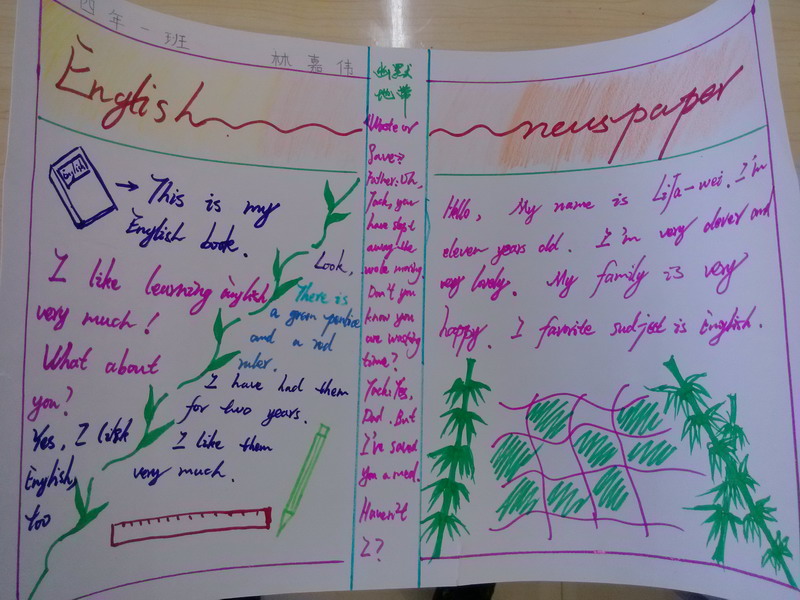 四年一班
林嘉伟
English newspaper
English
This is my
English book.
I like learning English
very much!
What about
you?
Yes, I like
English,
too
Look,
There is
a green pencice
and a red
ruler.
I have had them
for two years.
I like them
very much.
幽默
地带
Waste or
Save?
Father: Oh,
Jack, you
have slept
away the
whole morning.
Don't you
know you
are wasting
time?
Jack: Yes,
Dad. But
I've saved
you a meal.
Haven't
I?
Hello, My name is LiJa-wei. I'm
eleven years old. I'm very clever and
very lovely. My family is very
happy. I favorite subject is English.